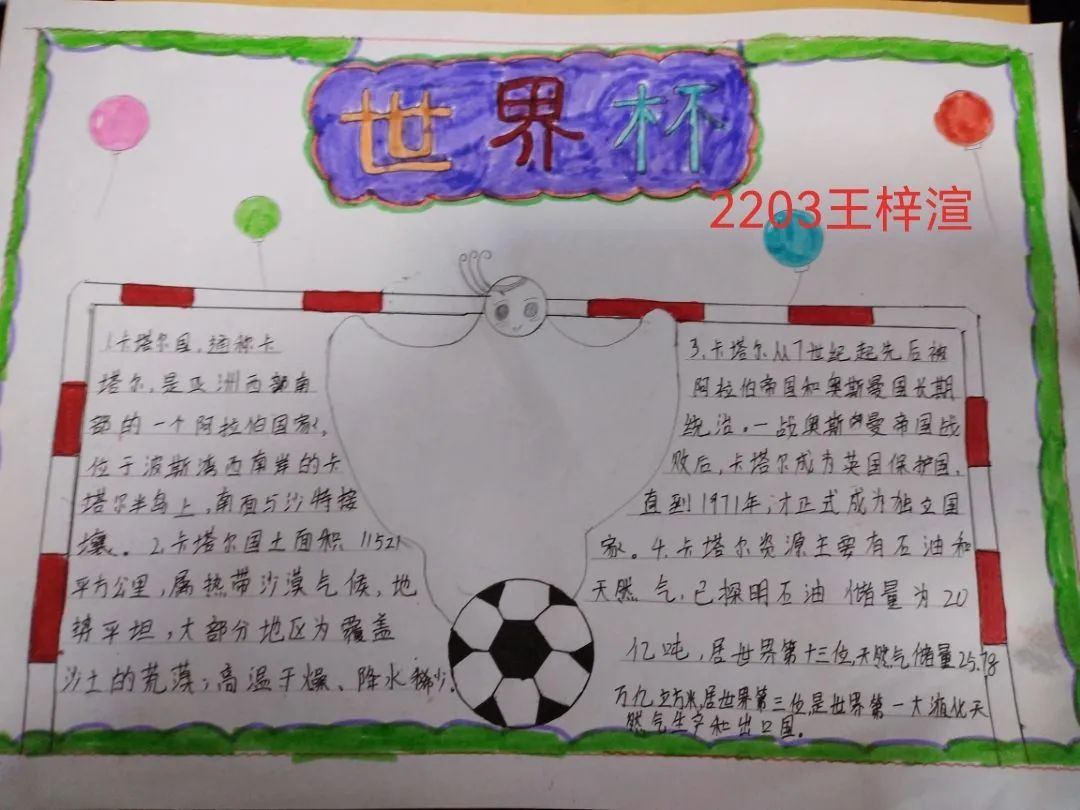 世界杯
2203王梓渲
1.卡塔尔国，通称卡
塔尔，是亚洲西部南
部的一个阿拉伯国家，
位于波斯湾西南岸的卡
塔尔半岛上，南面与沙特接
壤。2.卡塔尔国土面积11521
平方公里，属热带沙漠气候，地
势平坦，大部分地区为覆盖
沙土的荒漠，高温干燥、降水稀少。
3.卡塔尔从7世纪起先后被
阿拉伯帝国和奥斯曼国长期
统治。一战奥斯曼帝国战
败后，卡塔尔成为英国保护国，
直到1971年，才正式成为独立国
家。4.卡塔尔资源主要有石油和
天然气，已探明石油储量为20
亿吨，居世界第十三位，天然气储量25.78
万亿立方米，居世界第三位，是世界第一大液化天
然气生产和出口国。